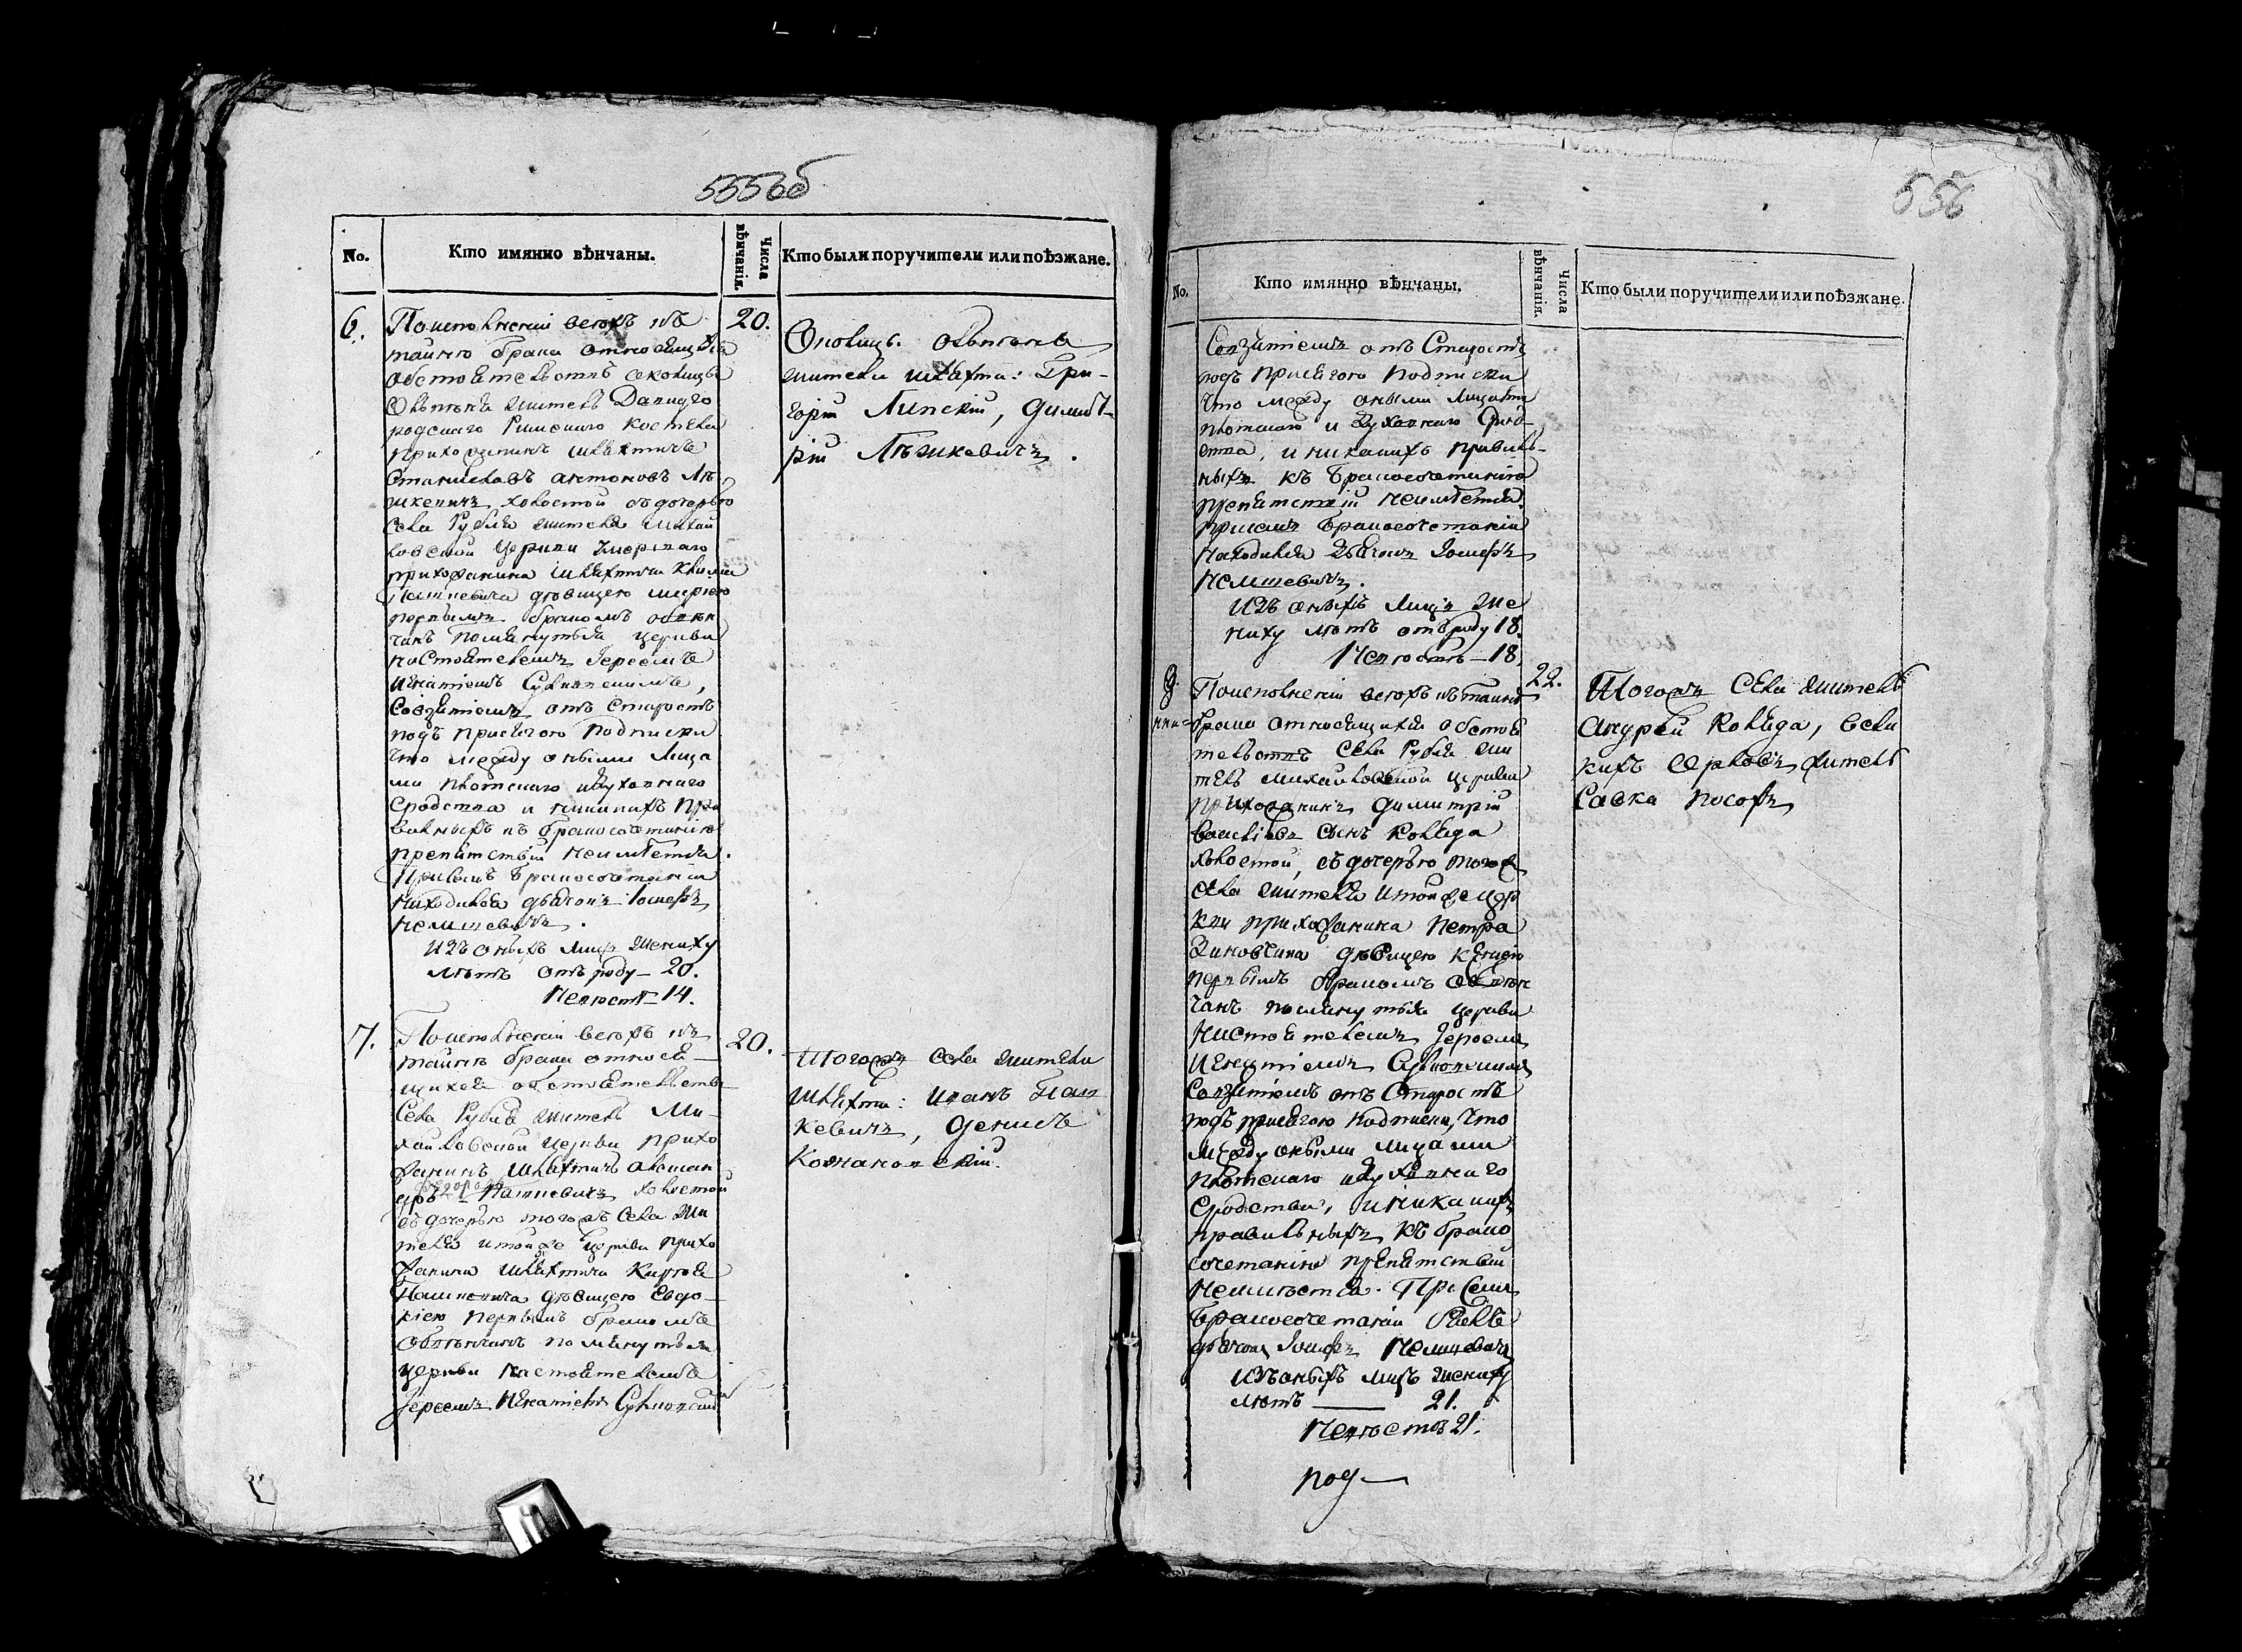 No.
Кто имянно вѣнчаны.
Числа вѣнчанія.
Кто были поручители или поѣзжане.
6.
По исполненіи всѣхъ къ
тайнѣ брака относящихся
обстоятельствъ
житель Давидго
родскаго костела
прихожанинъ шляхтичъ
Станиславъ Антоновъ
холостой съ дочерью
села Рубля жителя Михай
ловской церкви умершаго
прихожанина шляхтича
дѣвицею
первымъ бракомъ обвѣн
чанъ помянутыя церкви
настоятелемъ Іереемъ
Игнатіемъ
Со взятіемъ отъ старостъ
подъ присягою подписки
что между оными лица
ми плотскаго и духовнаго
сродства и никакихъ пра
вильныхъ къ бракосочетанію
препятствій неимѣется.
При семъ бракосочетаніи
находился дьячокъ Іосифъ
Немшевичъ.
Изъ оныхъ лицъ жениху
лѣтъ отъ роду – 20.
Невѣстѣ – 14.
20.
жители шляхта: Гри-
горій Липскій, Димит-
рій Лѣшкевичъ.
7.
По исполненіи всѣхъ къ
тайнѣ брака относя-
щихся обстоятельствъ
Села Рубля житель Ми-
хайловской церкви прихо
жанинъ шляхтичъ Алексан
дръ холостой
съ дочерью тогожъ села жи
теля и тойже церкви прихо
жанина шляхтича
дѣвицею Евдо-
кіею первымъ бракомъ
обвѣнчанъ помянутыя
церкви настоятелемъ
Іереемъ Игнатіемъ
20.
Тогожъ села жители
шляхта: Иванъ
Денисъ
No.
Кто имянно вѣнчаны.
Числа вѣнчанія.
Кто были поручители или поѣзжане.
Со взятіемъ отъ старостъ
подъ присягою подписки
что между оными лицами
плотскаго и духовнаго срод-
ства, и никакихъ правиль-
ныхъ къ бракосочетанію
препятствій неимѣется.
При семъ бракосочетаніи
находился дьячокъ Іосифъ
Немшевичъ.
Изъ оныхъ лицъ же
ниху лѣтъ отъ роду 18.
Невѣстѣ – 18.
По исполненіи всѣхъ къ тайнѣ
брака относящихся обстоя
тельствъ села Рубля жи
тель Михайловской церкви
прихожанинъ Димитрій
Васильевъ сынъ Коляда
холостой, съ дочерью тогожъ
села жителя и тойже цер
кви прихожанина Петра
дѣвицею Ксеніею
первымъ бракомъ обвѣн
чанъ помянутыя церкви
настоятелемъ Іереемъ
Игнатіемъ
Со взятіемъ отъ старостъ
подъ присягою подписки, что
между оными лицами
плотскаго и духовнаго
сродства, и никакихъ
правильныхъ къ брако
сочетанію препятствій
неимѣется. При семъ
бракосочетаніи былъ
дьячокъ Іосифъ Немшевичъ
Изъ оныхъ лицъ жениху
лѣтъ — 21.
Невѣстѣ 21.
22.
Тогожъ села житель
Андрей Коляда, вели
кихъ житель
Савка Носоръ
под—